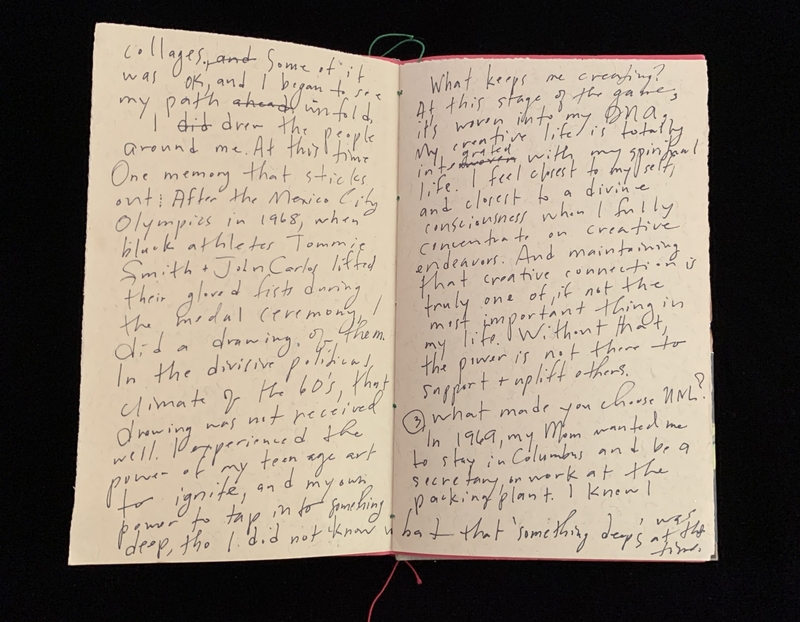 collages, and Some of it
was OK, and I began to see
my path ahead unfold,
I did drew the people
around me. At this time
One memory that sticks
out: After the Mexico City
Olympics in 1968, when
black athletes Tommie
Smith + John Carlos lifted
their gloved fists during
the medal ceremony, I
did a drawing of them.
In the divisive political
climate of the 60's, that
drawing was not received
well. I experienced the
power of my teen age art
to ignite, and my own
power to tap into something
deep, tho I did not know what that "something deep" was
at the
time.
What keeps me creating?
At this stage of the game,
it's woven into my DNA.
My creative life is totally
integrated with my spiritual
life. I feel closest to my self,
and closest to a divine
consciousness when I fully
concentrate on creative
endeavors. And maintaining
that creative connection is
truly one of, if not the
most important thing in
my life. Without that,
the power is not there to
support + uplift others.
3) What made you choose UNL?
In 1969, my Mom wanted me
to stay in Columbus and be a
secretary, or work at the
packing plant. I knew I